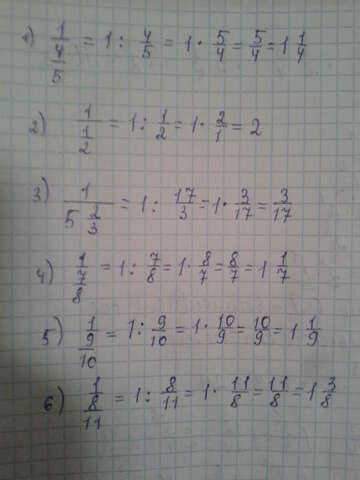 1) 1/(4/5) = 1 : 4/5 = 1 · 5/4 = 5/4 = 1 1/4
2) 1/(1/2) = 1 : 1/2 = 1 · 2/1 = 2
3) 1/(5 2/3) = 1 : 17/3 = 1 · 3/17 = 3/17
4) 1/(7/8) = 1 : 7/8 = 1 · 8/7 = 8/7 = 1 1/7
5) 1/(9/10) = 1 : 9/10 = 1 · 10/9 = 10/9 = 1 1/9
6) 1/(8/11) = 1 : 8/11 = 1 · 11/8 = 11/8 = 1 3/8